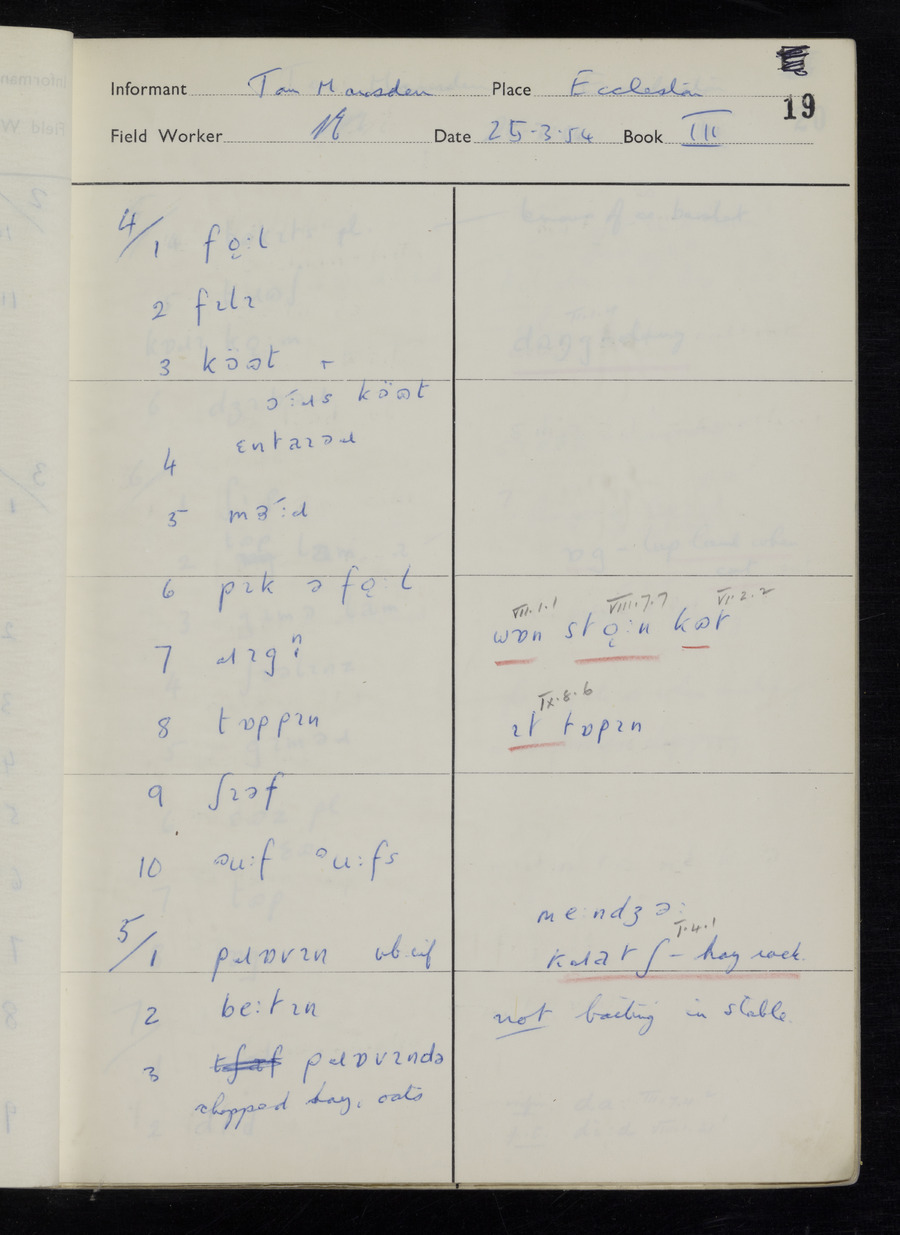 19
Informant Tom Marsden Place Eccleston
Field Worker Date 25-3-54 Book III
4/1 fǫ:l
2 fɪlɪ
3 kɔ̈ət
ə́:ɹs kɔ̈ət
4 ɛntaɪəɹ
5 mɜ́:ɹ
6 pɪk ə fǫ:l
7 ɹɪgn̩ wɒn stǫ:n kət
VII.1.1 VIII.7.7 VI.2.2
8 tɒppɪn ɪt tɒpɪn
IX.8.6
9 ʃɪəf
10 əu:f əu:fs
me:ndʒə:
5/1 pɹɒvɪn kɹatʃ - hay rack.
I.4.1
2 be:tɪn not baiting in stable.
3 pɹɒvɪndə
chopped hay, oats